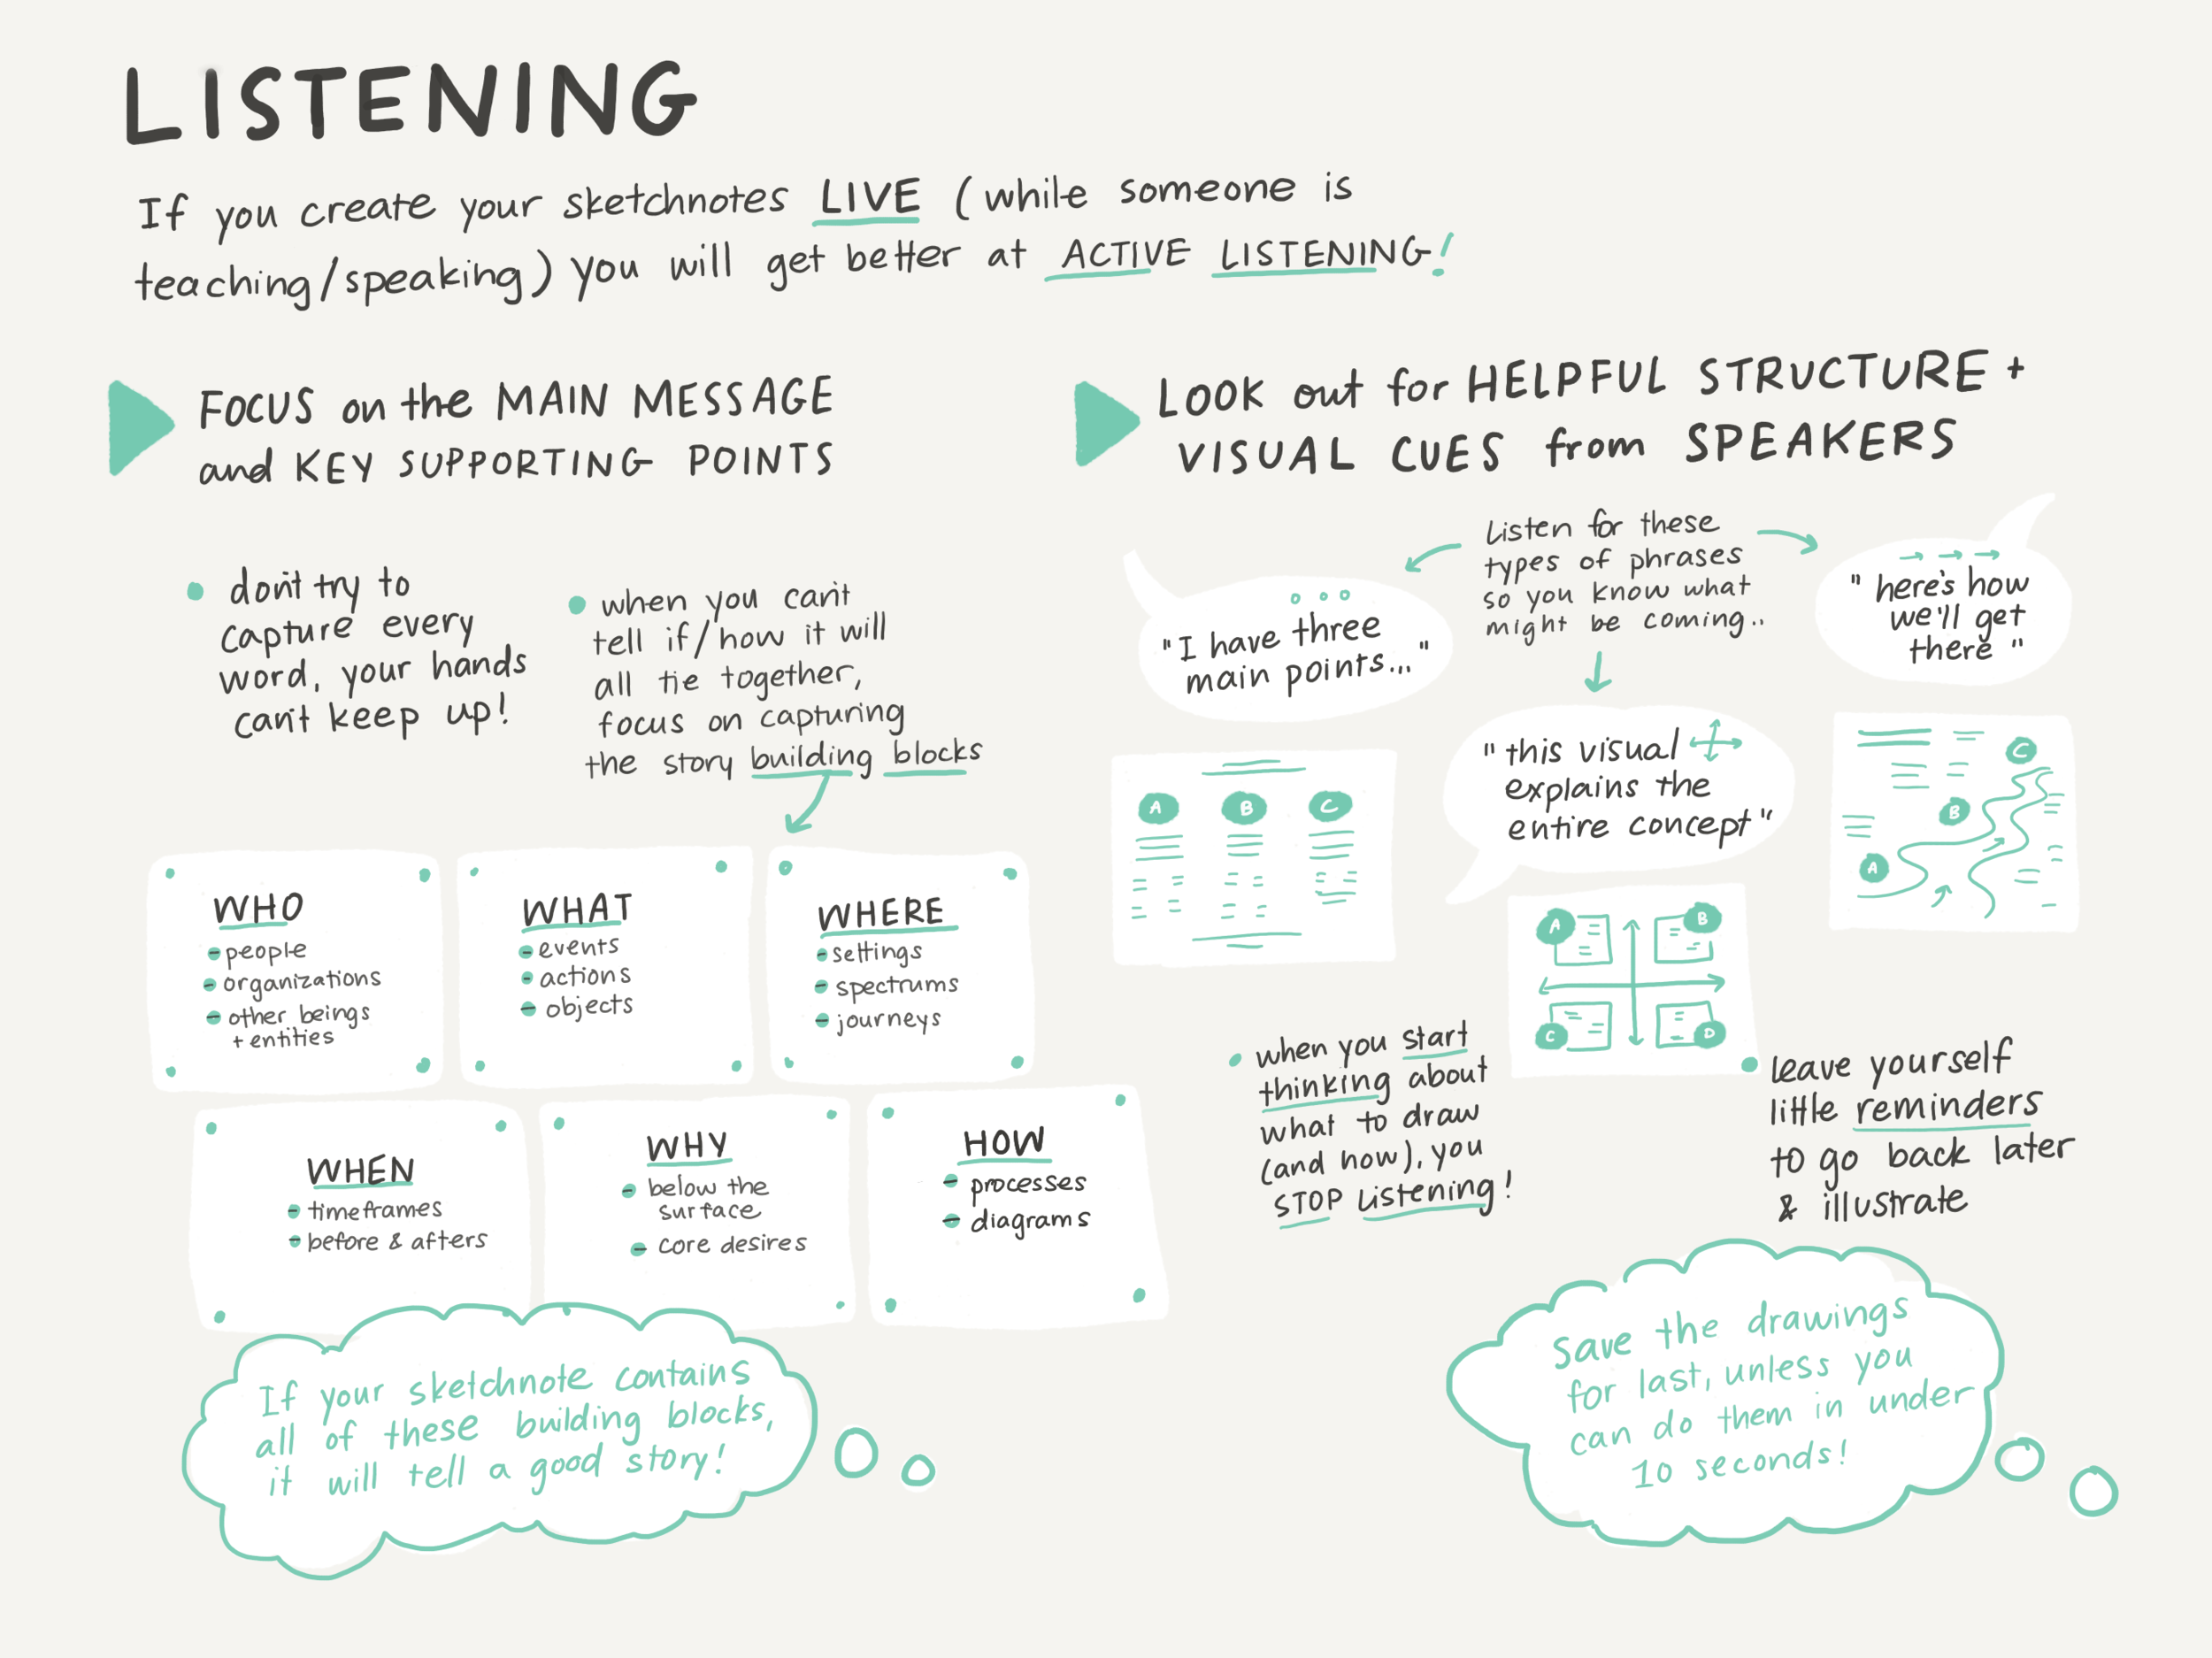 LISTENING
If you create your sketchnotes LIVE (while someone is
teaching/speaking) you will get better at ACTIVE LISTENING!
FOCUS on the MAIN MESSAGE
and KEY SUPPORTING POINTS
don't try to
capture every
word, your hands
can't keep up!
when you can't
tell if/how it will
all tie together,
focus on capturing
the story building blocks
WHO
- people
- organizations
- other beings
+ entities
WHAT
- events
- actions
- objects
WHERE
- settings
- spectrums
- journeys
WHEN
- timeframes
- before & afters
WHY
- below the
surface
- core desires
HOW
- processes
- diagrams
If your sketchnote contains
all of these building blocks,
it will tell a good story!
LOOK out for HELPFUL STRUCTURE +
VISUAL CUES from SPEAKERS
Listen for these
types of phrases
so you know what
might be coming..
"I have three
main points..."
"here's how
we'll get
there"
"this visual
explains the
entire concept"
A B C
A
B
C
A B
C D
when you start
thinking about
what to draw
(and how), you
STOP Listening!
leave yourself
little reminders
to go back later
& illustrate
Save the drawings
for last, unless you
can do them in under
10 seconds!